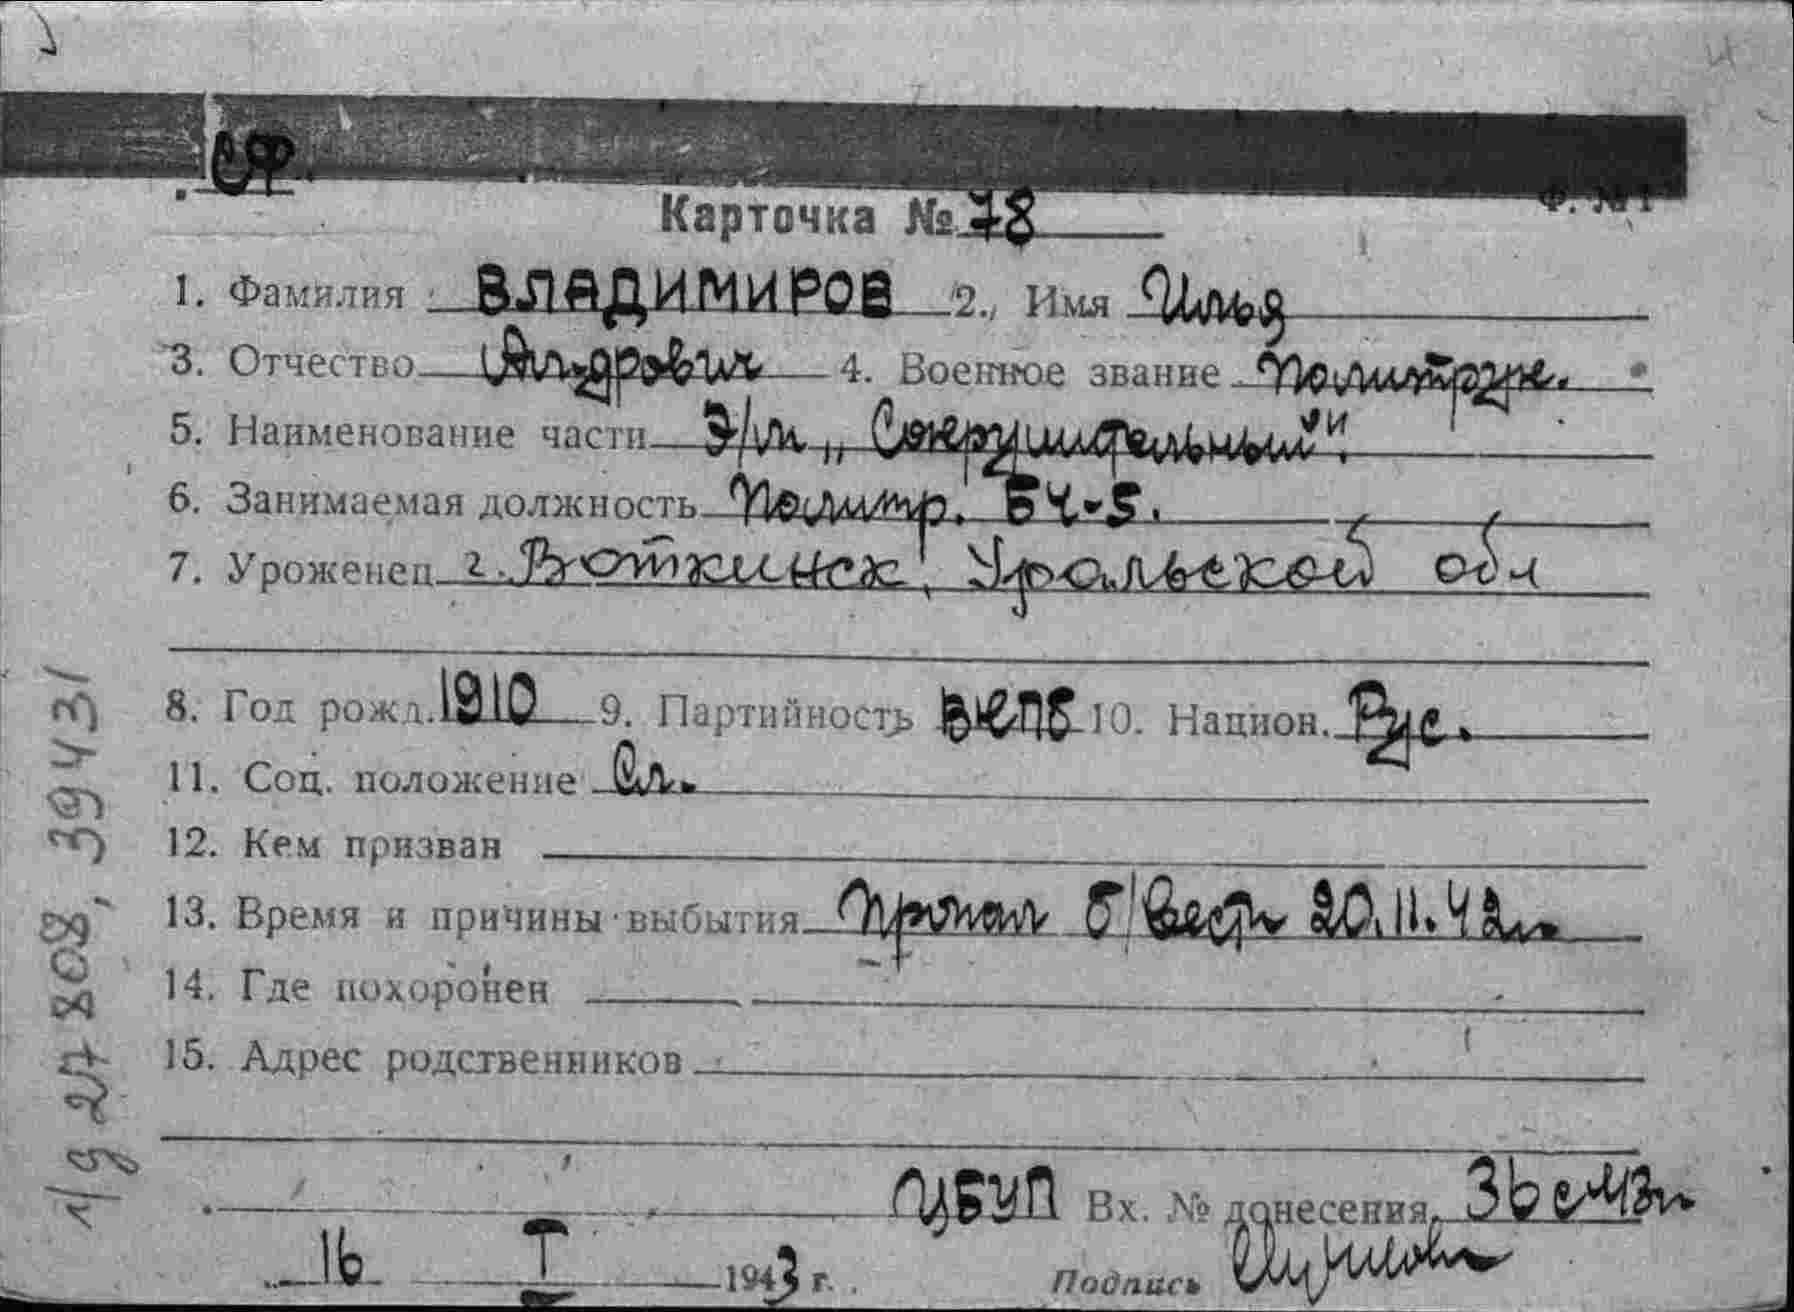 СФ.
Ф. № 1
Карточка № 78
1. Фамилия ВЛАДИМИРОВ 2. Имя Илья
3. Отчество 4. Военное звание Политрук.
5. Наименование части Э/м „Сокрушительный".
6. Занимаемая должность Политр. БЧ-5.
7. Уроженец г. Воткинск, Уральской обл
8. Год рожд. 1910 9. Партийность ВКПБ 10. Национ. Рус.
11. Соц. положение Сл.
12. Кем призван
13. Время и причины выбытия Пропал б/вести 20.11.42г
14. Где похоронен
15. Адрес родственников
ЦБУП Вх. № донесения
16 I 1943 г. Подпись
л/д 27808, 39431